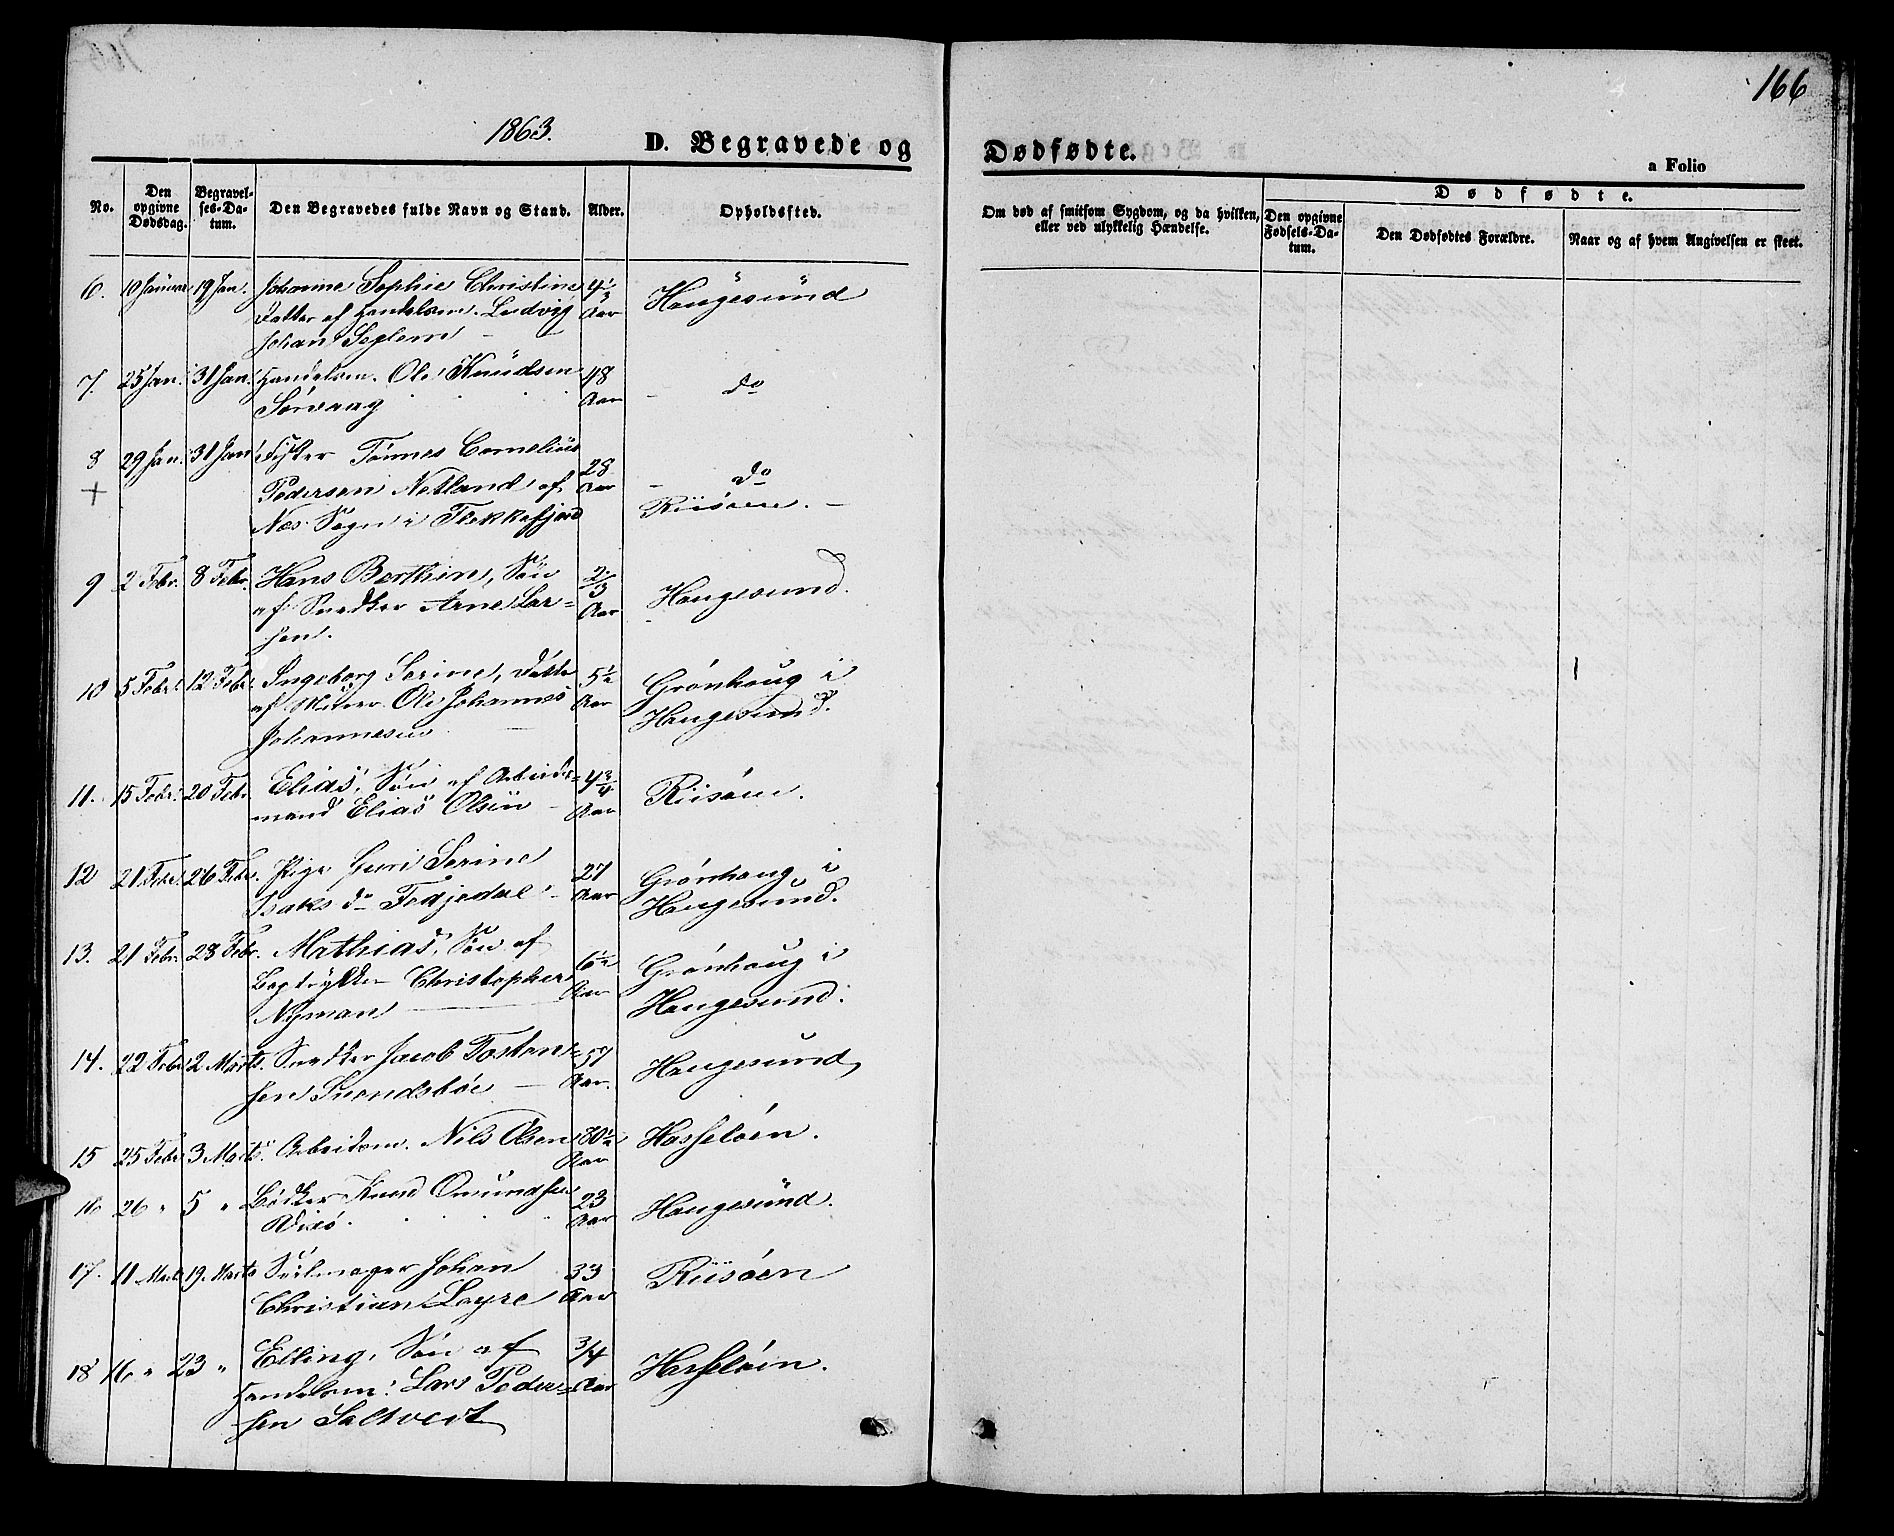 166
1863.
D. Begravede og Dødfødte.
a Folio
No.
Den opgivne Dødsdag.
Begravelses-Datum.
Den Begravedes fulde Navn og Stand.
Alder.
Opholdssted.
Om død af smitsom Sygdom, og da hvilken, eller ved ulykkelig Hændelse.
Dødfødte.
Den opgivne Fødsels-Datum.
Den Dødfødtes Forældre.
Naar og af hvem Angivelsen er skeet.
6. 10 Januar 19 Jan. Johanne Sophie Christine 4 1/3
Datter af Handelsm. Ludvig Aar Haugesund
Johan Seglem
7. 25 Jan. 31 Jan. Handelsm. Ole Knudsen 48
Sørvaag Aar - do
8 29 Jan. 31 Jan Fisker Tønnes Cornelius 28
+ Pedersen Netland af Aar - do
Næs Sogn i Flekkefjord Riisøen. -
9 2 Febr. 8 Febr. Hans Berthin, Søn 2/3
af Snedker Arne Lar= Aar Haugesund.
sen.
10 5 Febr. 12 Febr. Ingeborg Serine, Datter 5 1/2 Grønhaug i
af Murer Ole Johannes Aar Haugesund.
Johannesen
11. 15 Febr. 20 Febr Elias, Søn af Arbeids= 4 3/4 Riisøen.
mand Elias Olsen - Aar
12 21 Febr. 26 Febr. Pige Guri Serine 27 Grønhaug i
Isaks do Fedjedal - Aar Haugesund.
13. 21 Febr. 28 Febr. Mathias, Søn af 6 1/2 Grønhaug i
Bogtrykker Christopher Aar Haugesund.
Nyman
14. 22 Febr 2 Marts. Snedker Jacob Tosten= 57 Haugesund
sen Svendsbøe - Aar.
15 25 Febr 3 Marts. Arbeidsm. Nils Olsen 80 1/2 Hasseløen.
Aar
16 26 " 5 " Bødker Knud Omundsen 23 Haugesund.
Vixø. Aar
17. 11 Marts 19. Marts Seilmager Johan 33 Riisøen
Christian Loyre Aar
18 16 " 23 " Elling, Søn af 3/4 Hasseløen.
Handelsm. Lars Peder= Aar
sen Saltveit